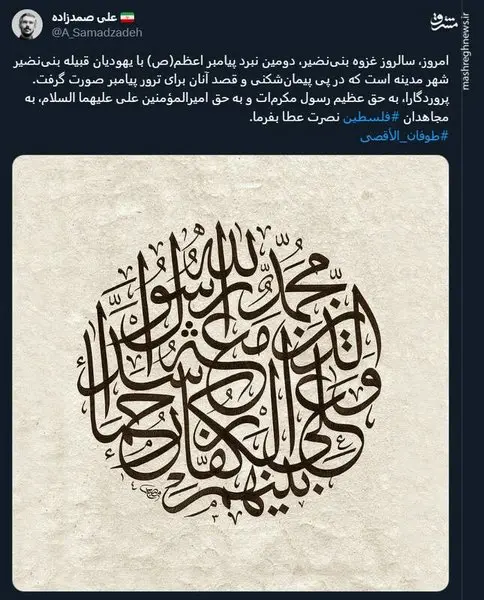 علی صمدزاده
@A_Samadzadeh
مشرق
mashreghnews.ir
امروز، سالروز غزوه بنی‌نضیر، دومین نبرد پیامبر اعظم(ص) با یهودیان قبیله بنی‌نضیر
شهر مدینه است که در پی پیمان‌شکنی و قصد آنان برای ترور پیامبر صورت گرفت.
پروردگارا، به حق عظیم رسول مکرم‌ات و به حق امیرالمؤمنین علی علیهما السلام، به
مجاهدان #فلسطین نصرت عطا بفرما.
#طوفان_الأقصی
محمد رسول الله والذین معه أشداء علی الکفار رحماء بینهم